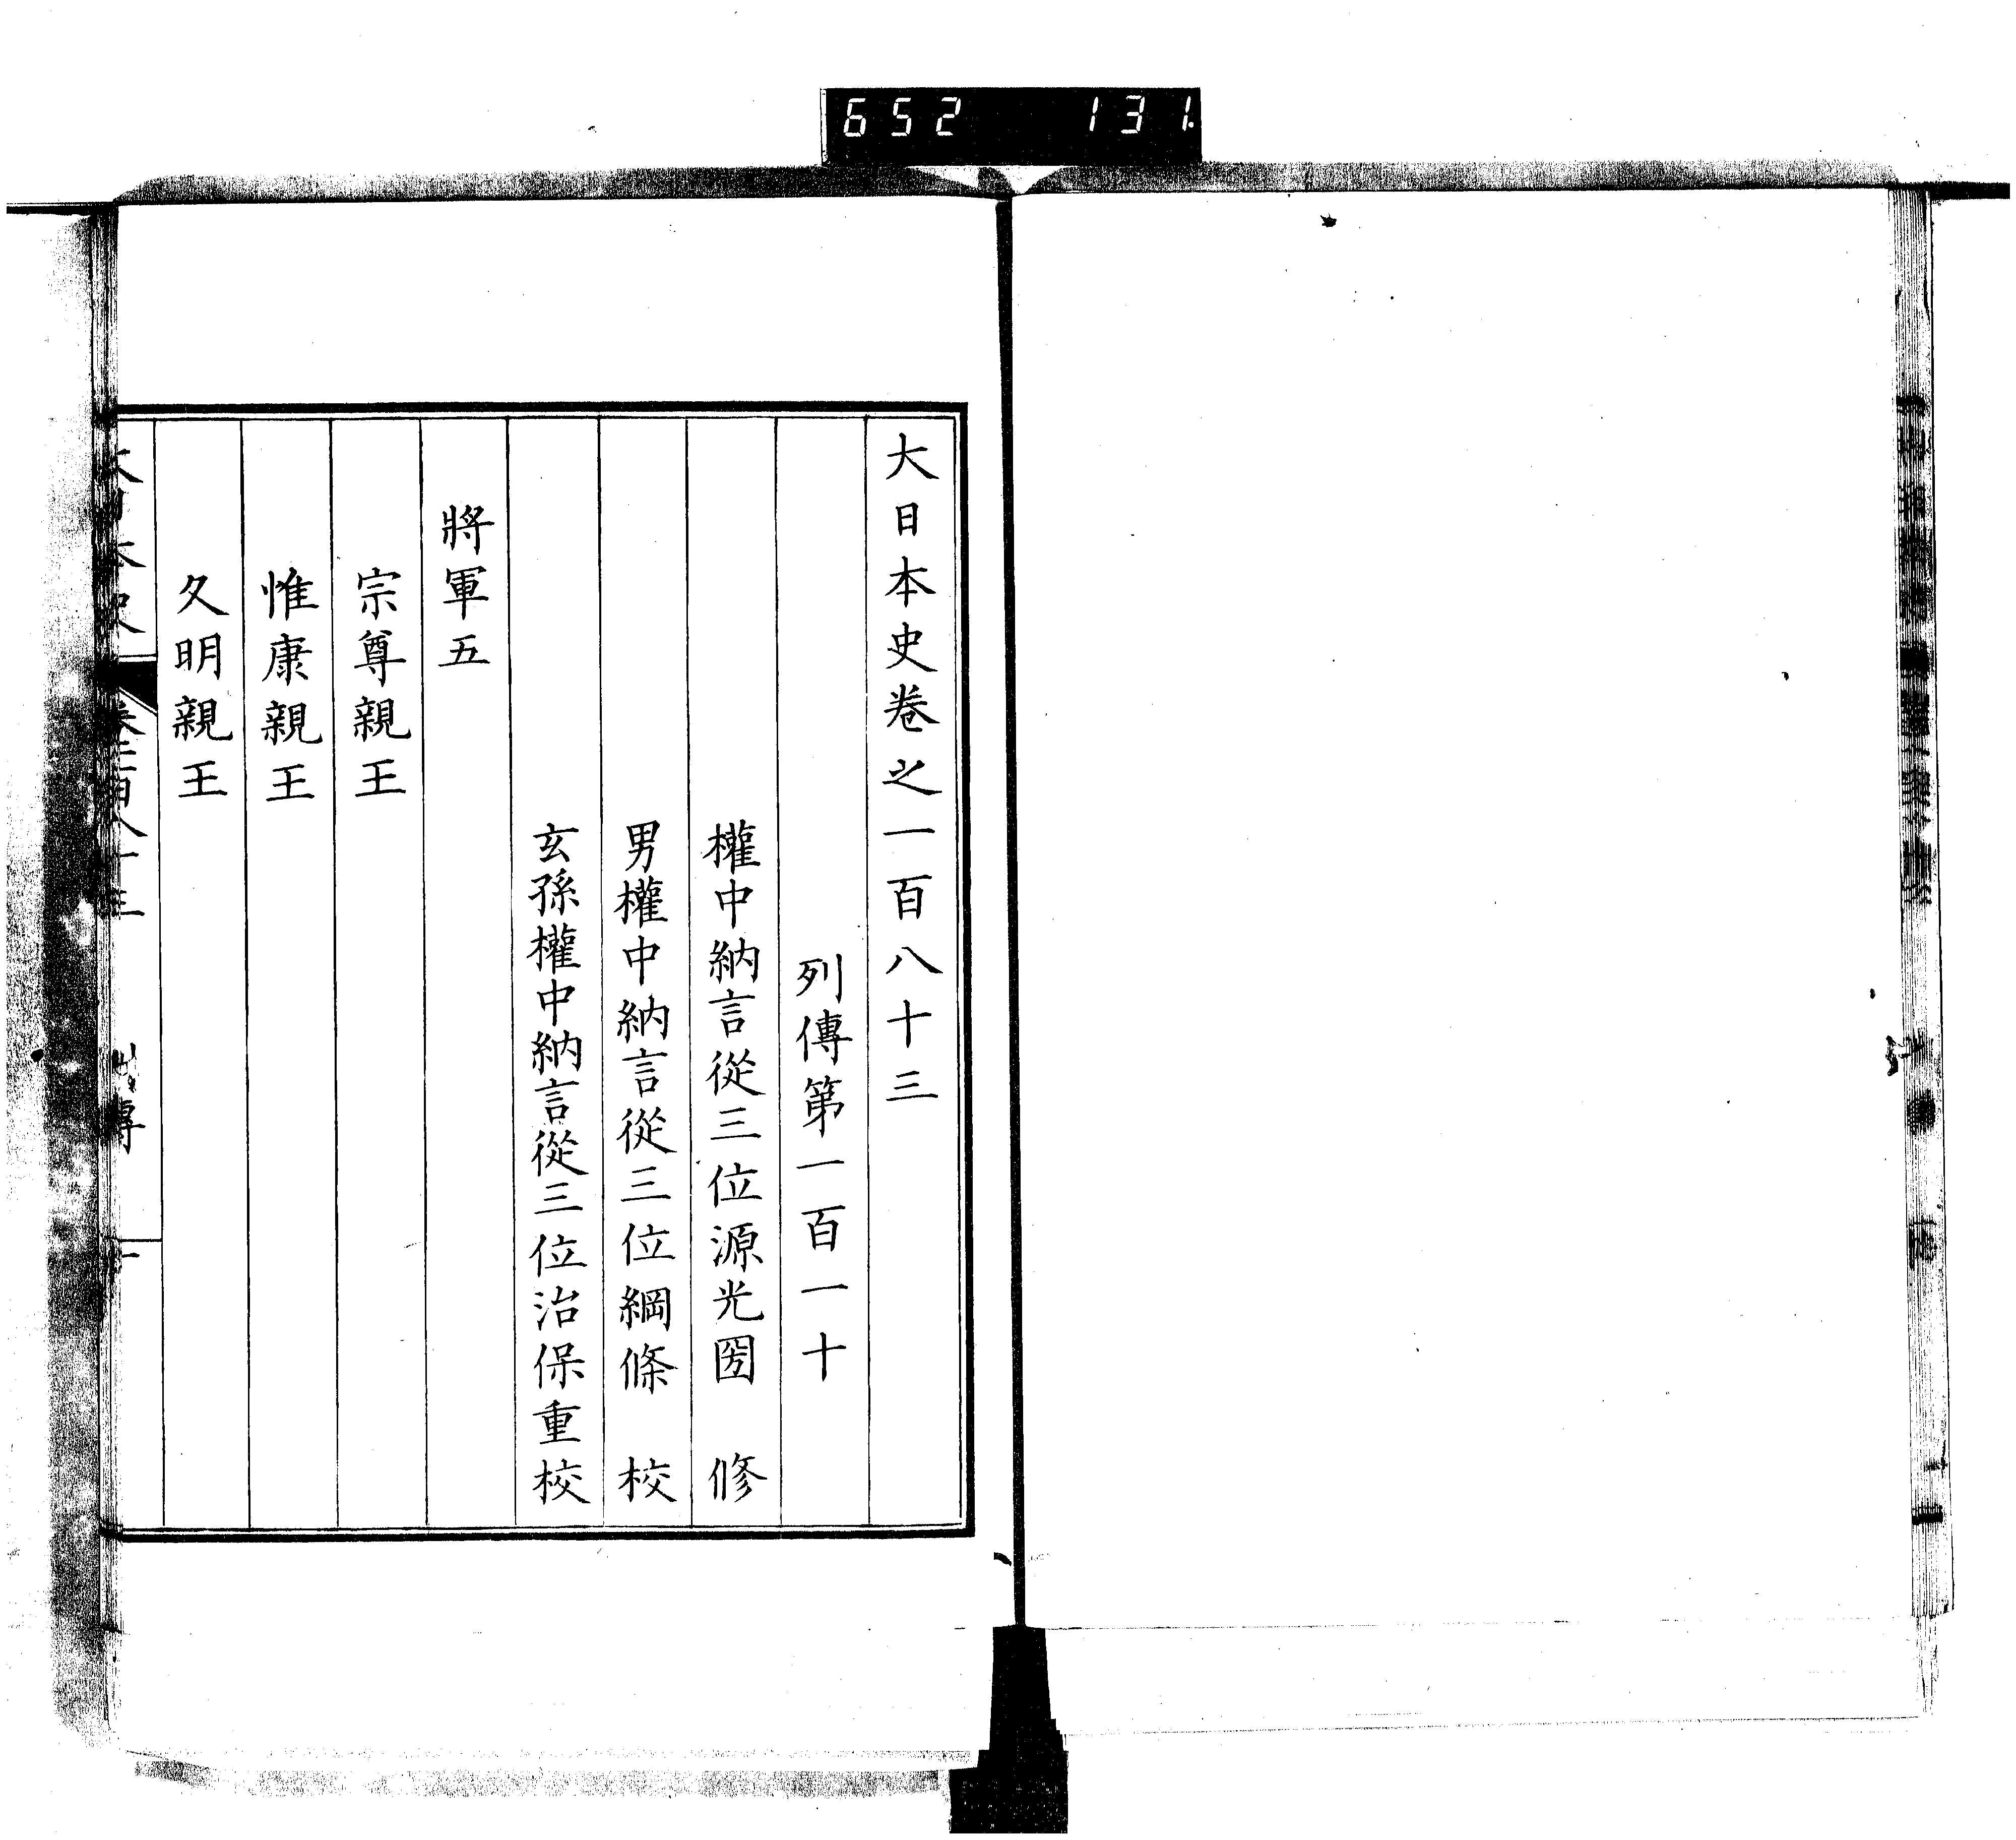 652 131.
大日本史卷之一百八十三
列傳第一百一十
權中納言從三位源光圀 修
男權中納言從三位綱條 校
玄孫權中納言從三位治保重校
將軍五
宗尊親王
惟康親王
久明親王